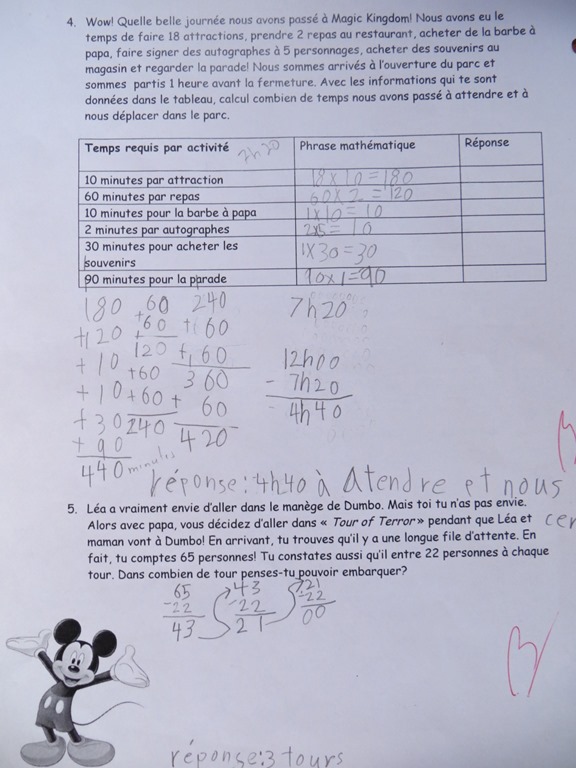 4. Wow! Quelle belle journée nous avons passé à Magic Kingdom! Nous avons eu le
temps de faire 18 attractions, prendre 2 repas au restaurant, acheter de la barbe à
papa, faire signer des autographes à 5 personnages, acheter des souvenirs au
magasin et regarder la parade! Nous sommes arrivés à l'ouverture du parc et
sommes partis 1 heure avant la fermeture. Avec les informations qui te sont
données dans le tableau, calcul combien de temps nous avons passé à attendre et à
nous déplacer dans le parc.
Temps requis par activité Phrase mathématique Réponse
10 minutes par attraction 18 x 10 = 180
60 minutes par repas 60 x 2 = 120
10 minutes pour la barbe à papa 1 x 10 = 10
2 minutes par autographes 2x5 = 10
30 minutes pour acheter les
souvenirs 1 x 30 = 30
90 minutes pour la parade 90 x 1 = 90
180 60 240 7h20
+120 +60 +60
+10 120 +60 12h00
+10 +60 360 - 7h20
+30 +60 + 60 4h40
+90 240 420
440 minutes
réponse: 4h40 à atendre et nous
5. Léa a vraiment envie d'aller dans le manège de Dumbo. Mais toi tu n'as pas envie.
Alors avec papa, vous décidez d'aller dans « Tour of Terror » pendant que Léa et
maman vont à Dumbo! En arrivant, tu trouves qu'il y a une longue file d'attente. En
fait, tu comptes 65 personnes! Tu constates aussi qu'il entre 22 personnes à chaque
tour. Dans combien de tour penses-tu pouvoir embarquer?
65 43 21
-22 -22 -22
43 21 00
réponse: 3 tours